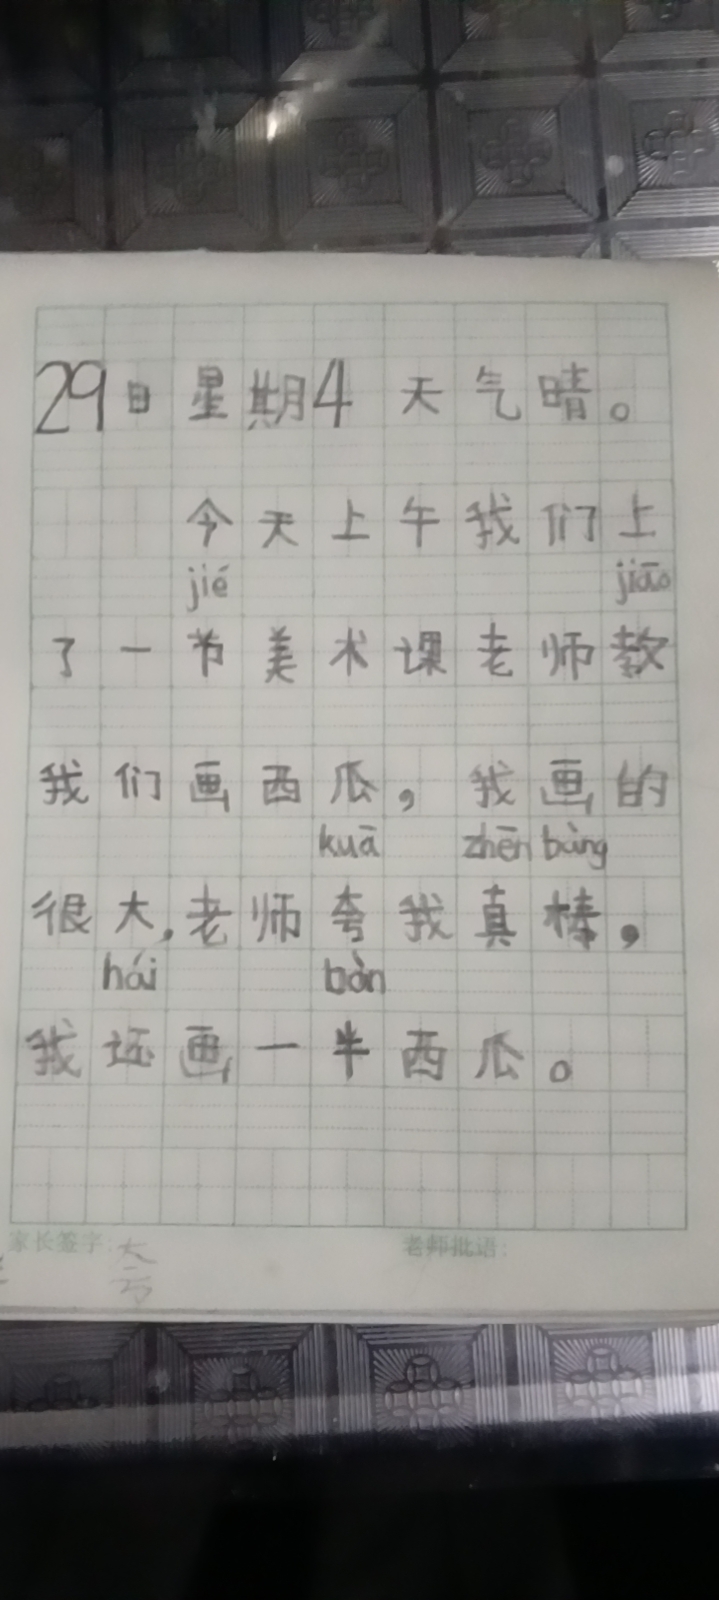 29日星期4 天气晴。
今天上午我们上
jié jiāo
了一节美术课老师教
我们画西瓜，我画的
kuā zhēn bàng
很大，老师夸我真棒，
hái bàn
我还画一半西瓜。
家长签字： 老师批语：
夸